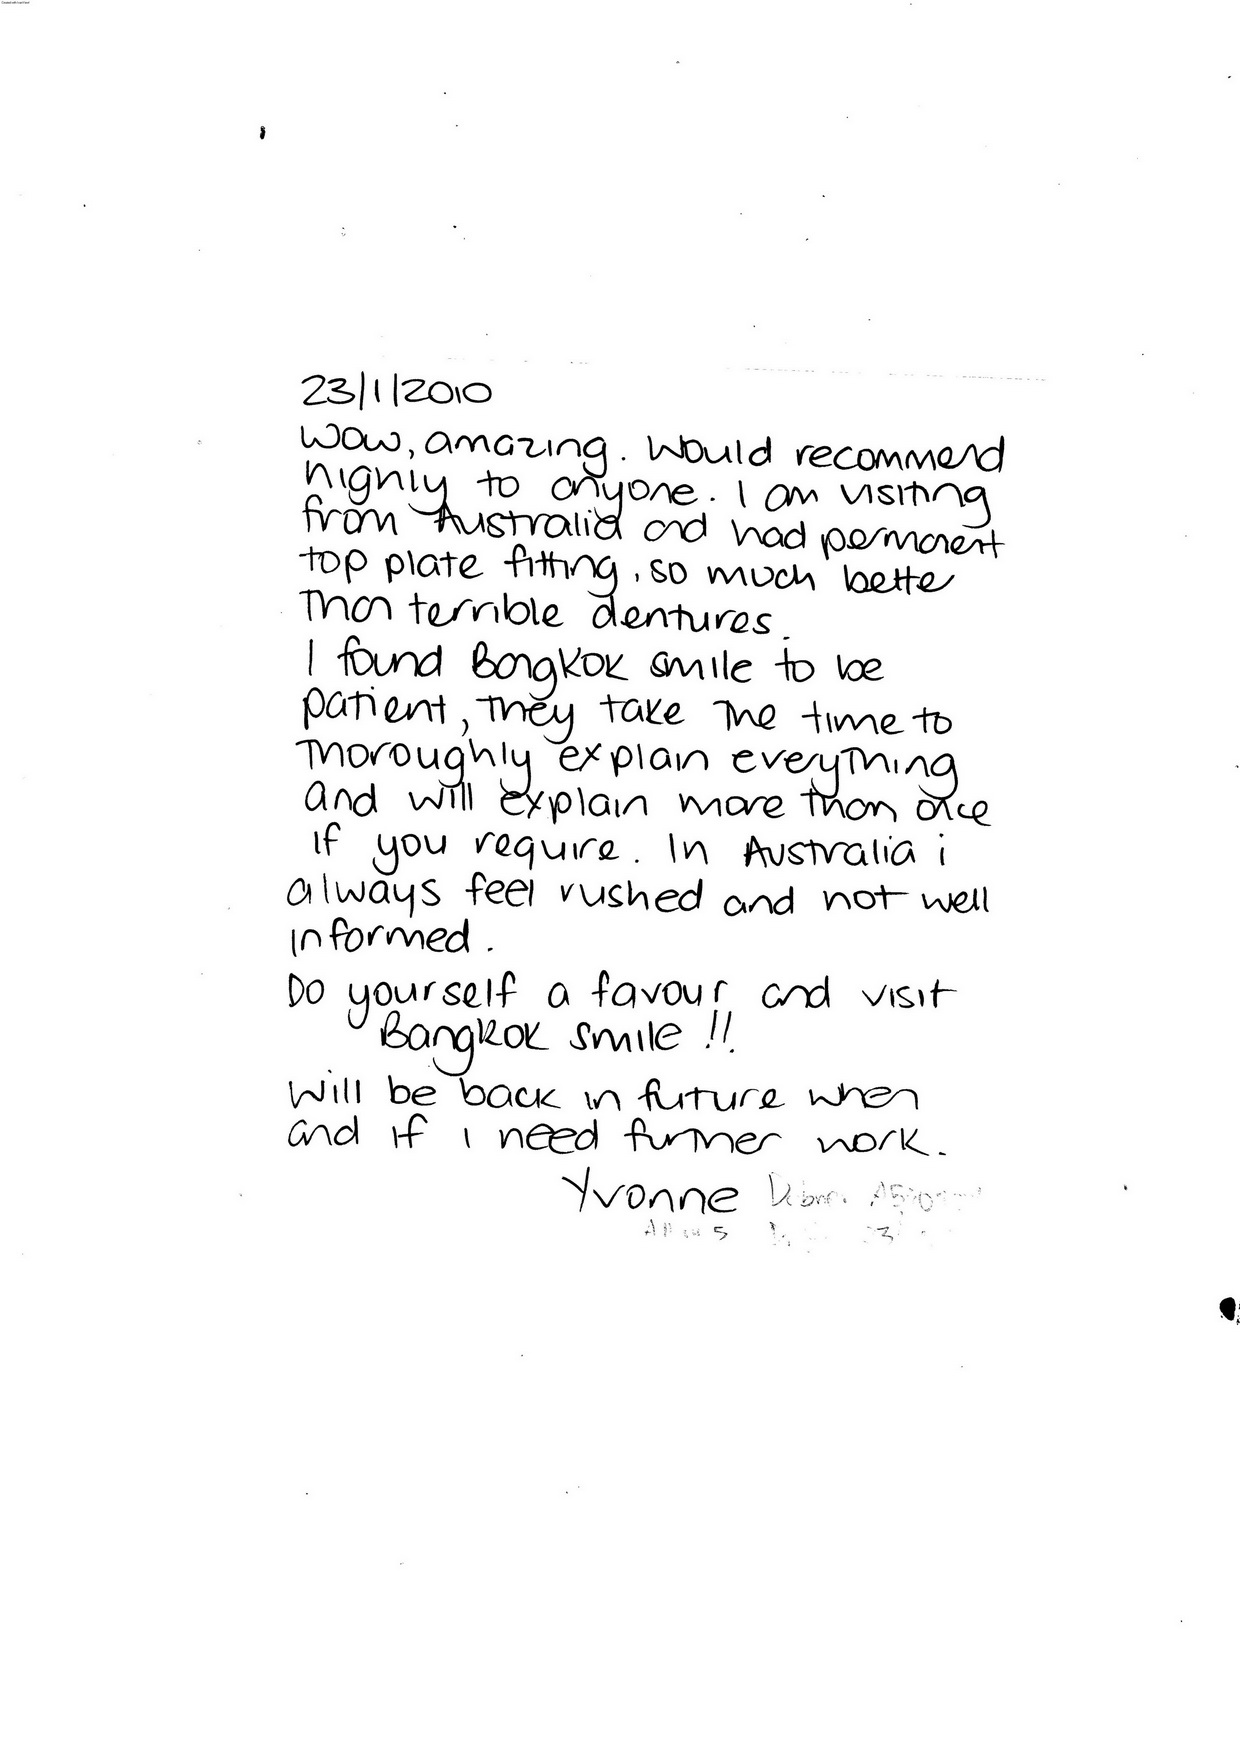 23/1/2010
Wow, amazing. Would recommend
highly to anyone. I am visiting
from Australia and had permanent
top plate fitting, so much better
than terrible dentures.
I found Bangkok smile to be
patient, they take the time to
thoroughly explain everything
and will explain more than once
if you require. In Australia i
always feel rushed and not well
informed.
Do yourself a favour and visit
Bangkok smile !!
Will be back in future when
and if i need further work.
Yvonne